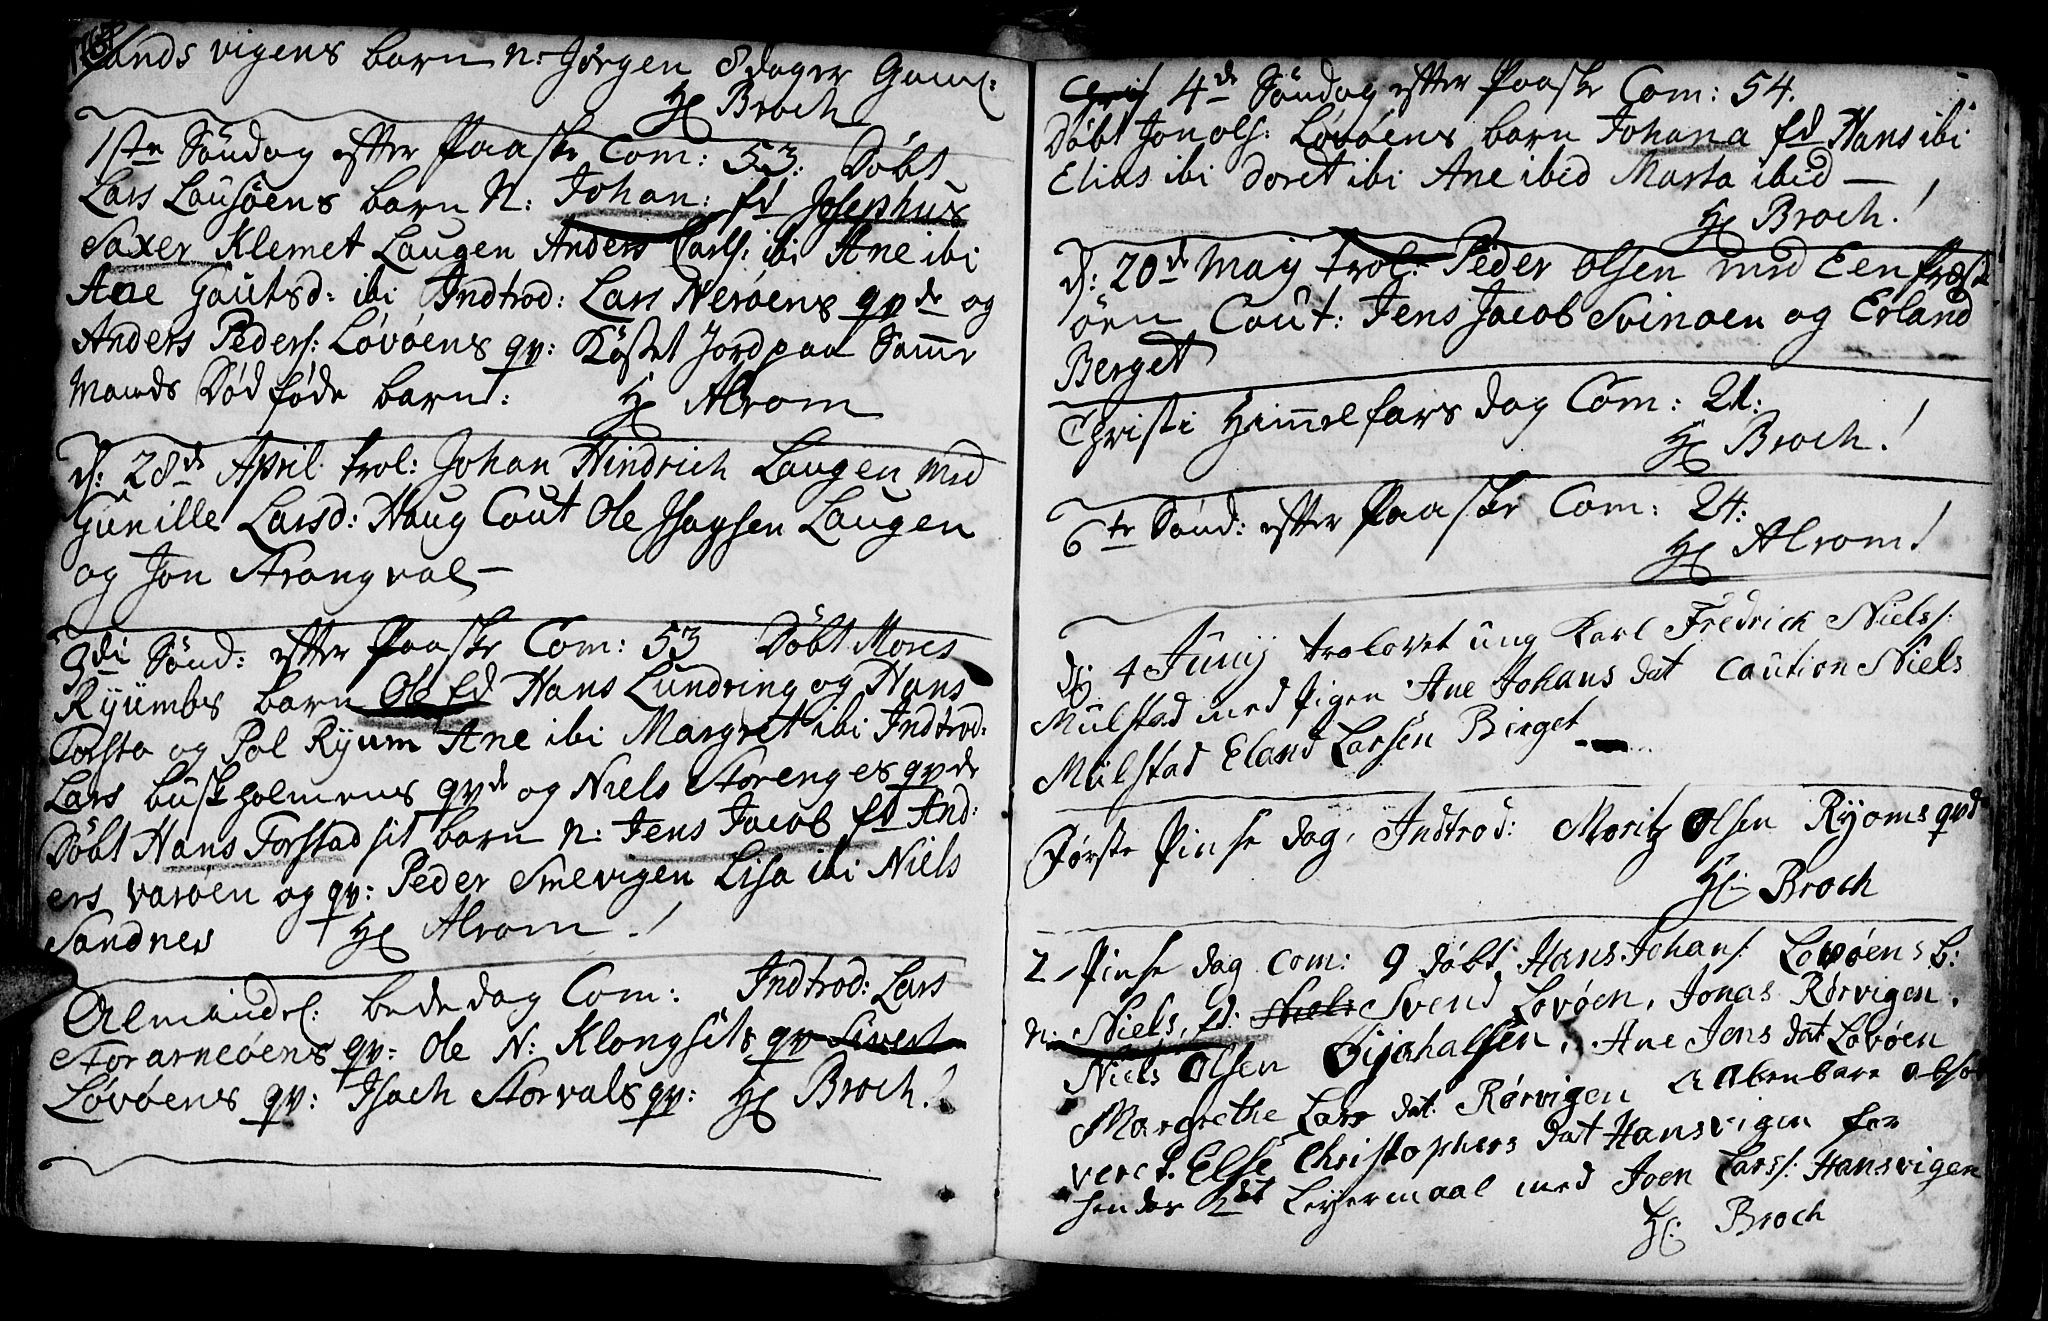 vigens barn n: Jørgen 8 dager Gaml:
H: Broch
1ste Söndag efter Paaske Com: 53: Döbt
Lars Lausöens barn N: Johan: fd Josephus
Saxer Klemet Laugen Anders Carls: ibi Ane ibi
Ane Gautsd: ibi Indtrod: Lars Nerøens qvde og
Anders Peders: Løvøens qv: Kastet Jord paa Samme
Mands Död föde barn: H: Alrom
d: 28de April trol: Johan Hindrich Laugen med
Gunille Larsd: Haug Caut Ole Isaysen Laugen
og Jon Strangval
3di Sönd: efter Paaske Com: 53 Döbt Mores
Ryumbs barn Ole fd Hans Lundring og Hans
Forsta og Pol Ryum Ane ibi Margret ibi Indtrod:
Lars buskholmens qvde og Niels Storenges qvde
Döbt Hans Forstad sit barn n: Jens Jacob fd And:
ers varøen og qv: Peder Smevigen Lisa ibi Niels
Sandnes H: Alrom
Almindel: bededag Com: Indtrod: Lars
Storarneøens qv: Ole N: Klongsets qv Sivert
Løvøens qv: Isach Storvals qv: H: Broch!
4de Söndag efter Paaske Com: 54.
Döbt Jon Ols: Løvøens barn Johana fd Hans ibi
Elias ibi doret ibi Ane ibid Marta ibid
H: Broch!
d: 20de Maij trol: Peder Olsen med Een Præst
öen Caut: Jens Jacob Svinøen og Erland
Berget
Christi Himmelfars dag Com: 21:
H: Broch!
6te Sönd: efter Paaske Com: 24:
H: Alrom!
d: 4 Junij trolovet ung Karl Fredrich Niels:
Mulstad med Pigen Ane Johans dat Caution Niels
Mulstad Eland Larsen Birget
Første Pinse dag, Indtrod: Moritz Olsen Ryoms qvd
H: Broch
2 Pinse dag Com: 9 döbt Hans Johans: Lovøens b:
n: Niels, fd: Niels Svend Lovøen, Jonas Rørvigen,
Niels Olsen, Ane Jens dat Løvøen
Margrethe Lars dat: Rørvigen Aabenbare absol
veret. Else Christophers dat Hansvigen for
hendes 2det Leyermaal med Joen Lars: Hansvigen
H: Broch